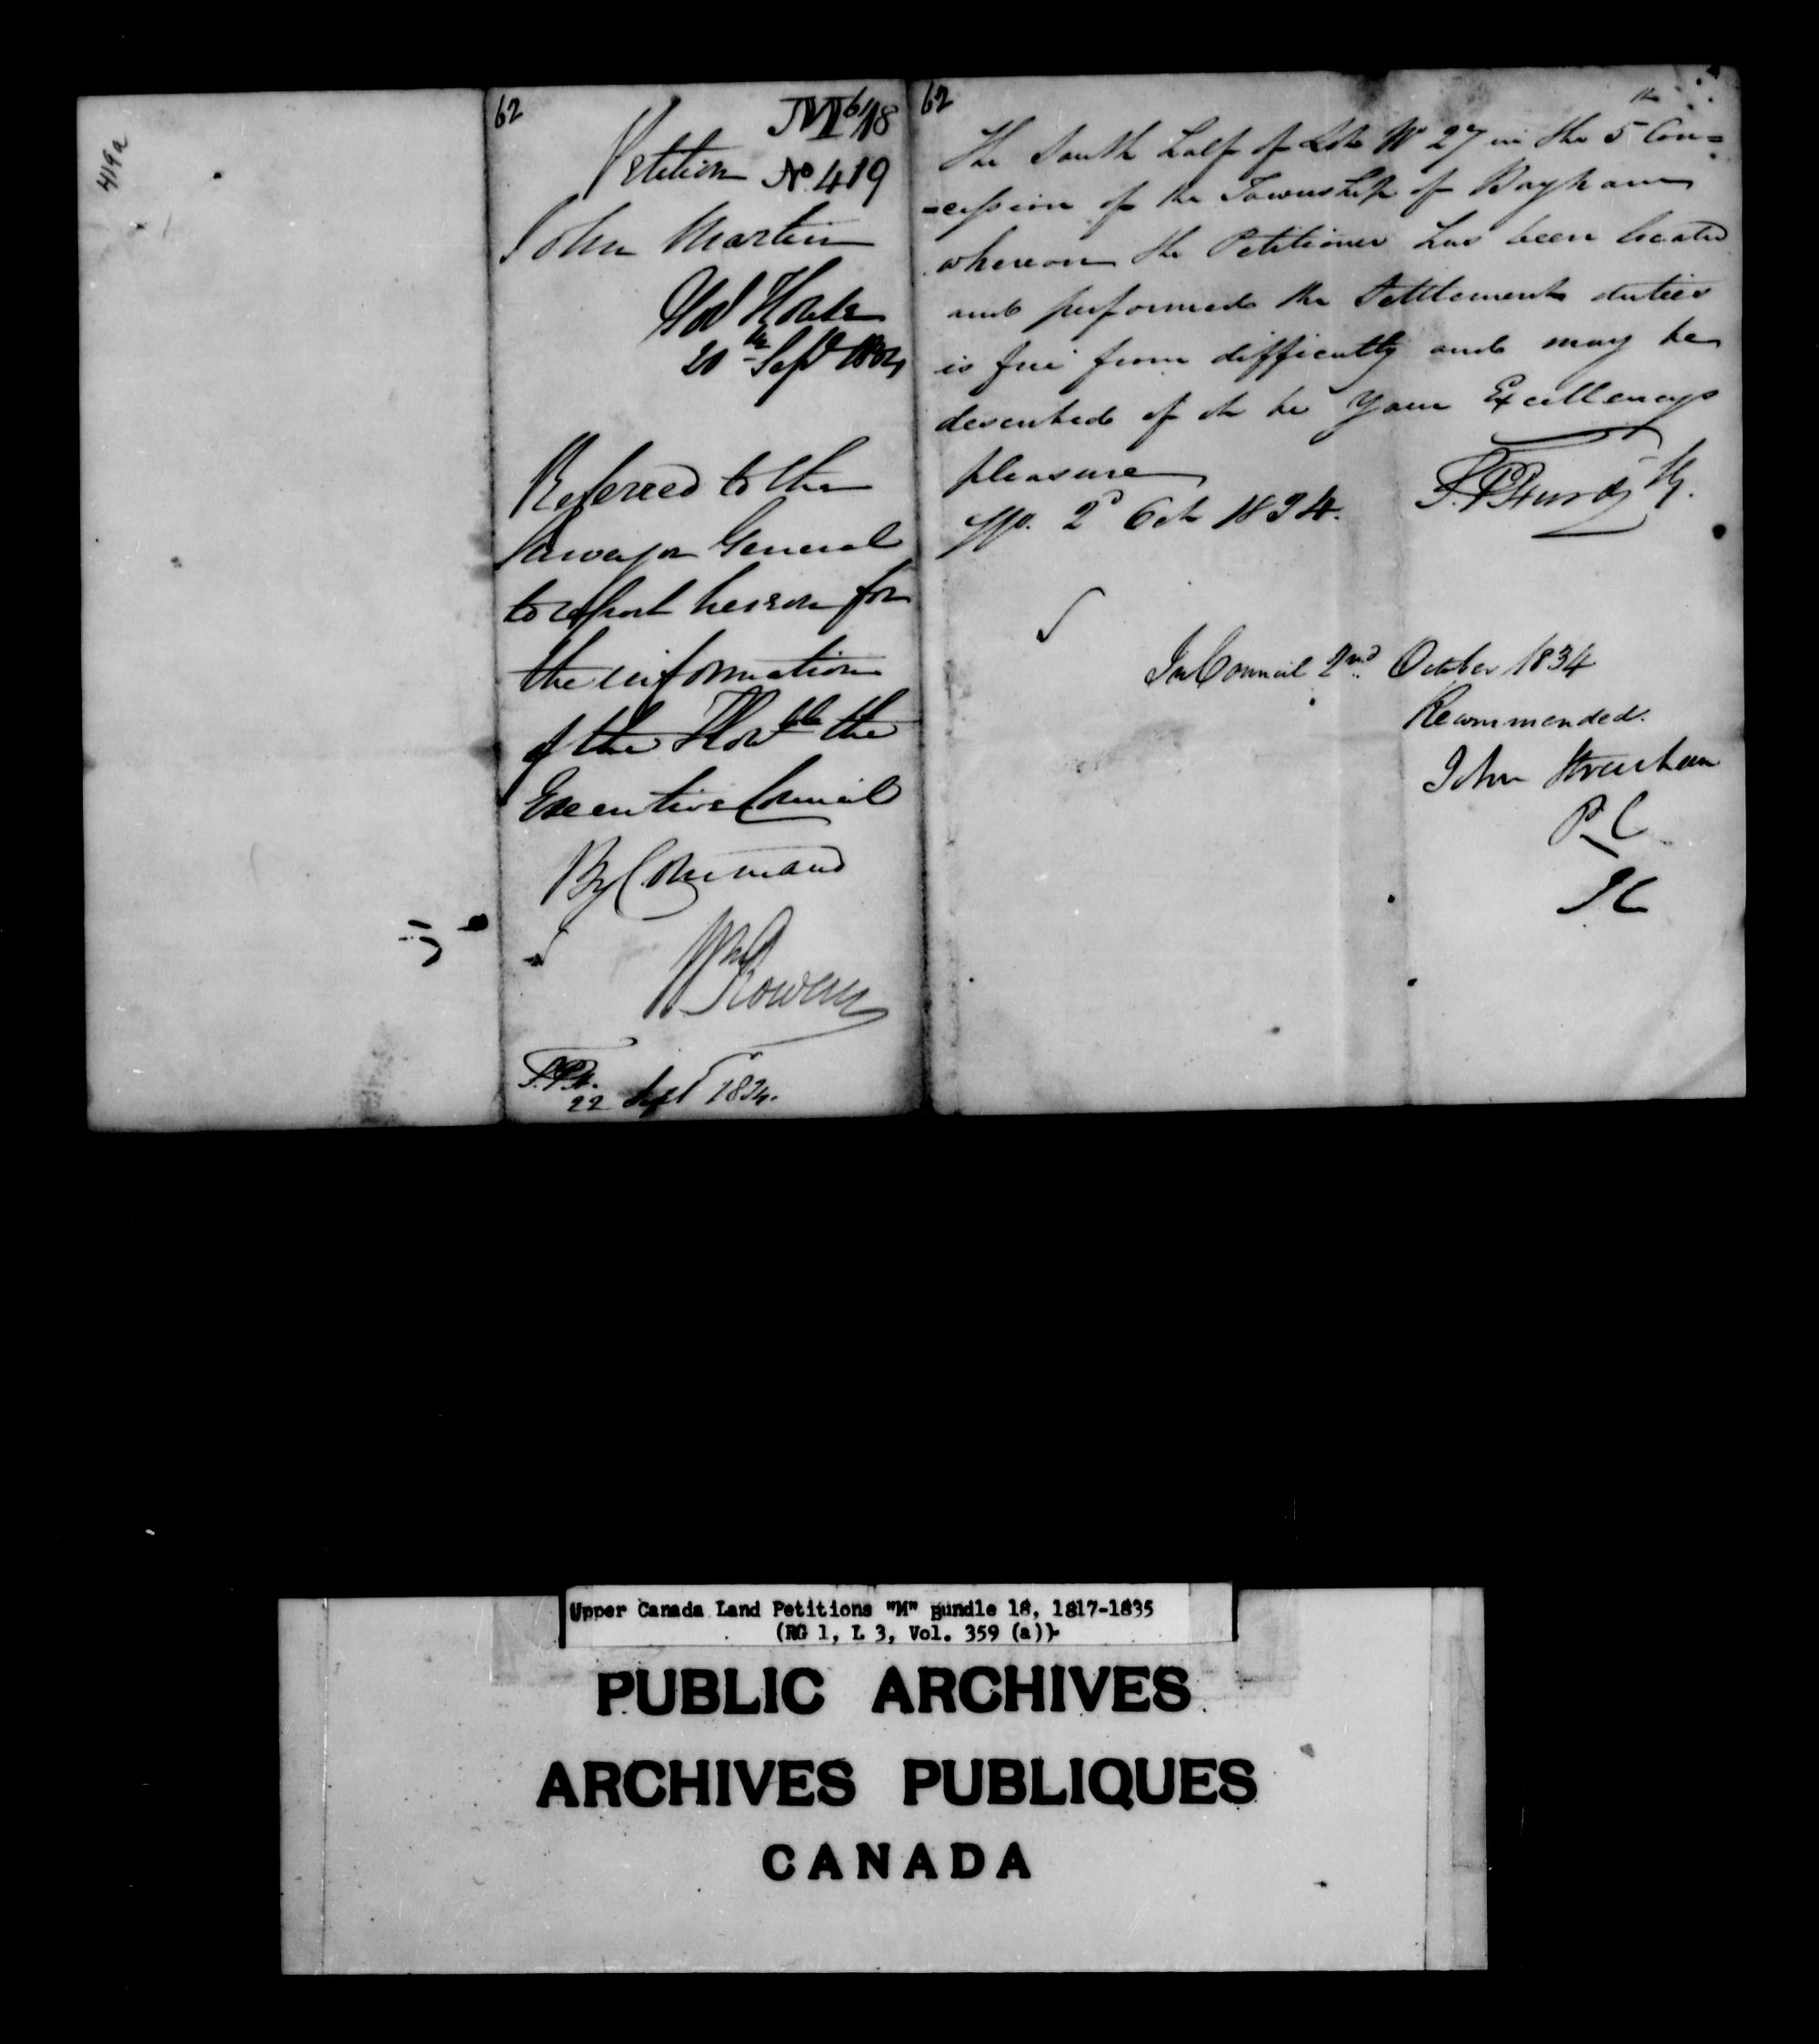 419a
62
M 18
Petition No. 419
John Martin
Govt House
20th Sept 1834
Referred to the
Surveyor General
to report hereon for
the information
of the Honble the
Executive Council
By Command
Wm Rowan
S.P.H.
22 Sept 1834.
62
The South half of Lot No 27 in the 5th Con=
=cession of the Township of Bayham
whereon the Petitioner has been located
and performed the Settlement duties
is free from difficulty and may be
described if it be Your Excellencys
pleasure
2d Oct 1834.
S.P. Hurd
In Council 2nd October 1834
Recommended.
John Strachan
P.C
Upper Canada Land Petitions "M" Bundle 18, 1817-1835
(RG 1, L 3, Vol. 359 (a))
PUBLIC ARCHIVES
ARCHIVES PUBLIQUES
CANADA